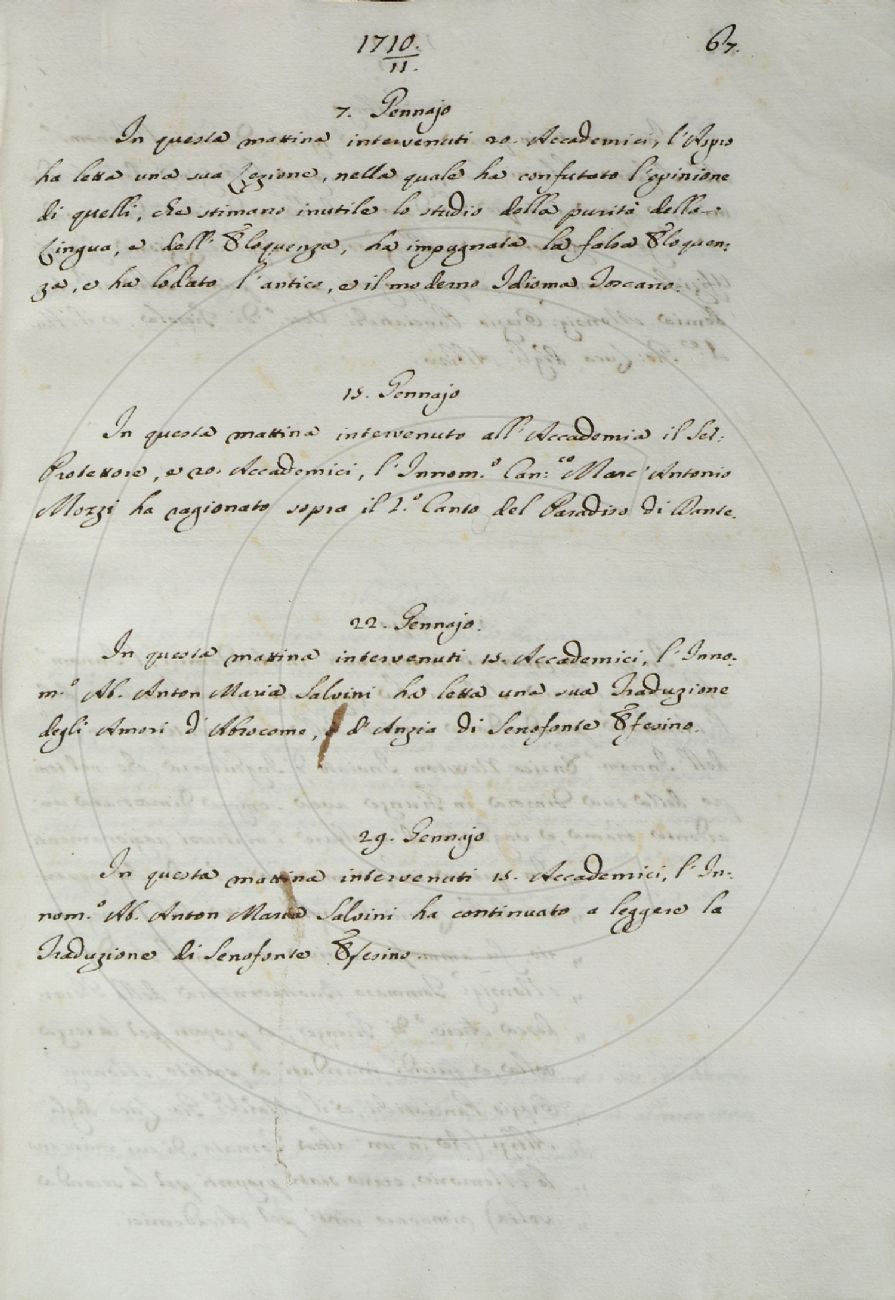 1710/11.
67.
7. Gennajo
In questa mattina intervenuti 20. Accademici, l'Aspro
ha letta una sua Lezione, nella quale ha confutato l'opinione
di quelli, che stimano inutile lo studio della purità della
Lingua, e dell'Eloquenza, ha impugnata la falsa Eloquen:
za, e ha lodato l'antico, e il moderno Idioma Toscano.
15. Gennajo
In questa mattina intervenuto all'Accademia il Ser.
Protettore, e 20. Accademici, l'Innom.º Can:co Marc'Antonio
Mozzi ha ragionato sopra il I.º Canto del Paradiso di Dante.
22. Gennajo.
In questa mattina intervenuti 15. Accademici, l'Inno:
m.º Ab. Anton Maria Salvini ha letta una sua Traduzione
degli Amori d'Abrocome, e d'Anzia di Senofonte Efesino.
29. Gennajo
In questa mattina intervenuti 15. Accademici, l'In:
nom.º Ab. Anton Maria Salvini ha continuato a leggere la
Traduzione di Senofonte Efesino.